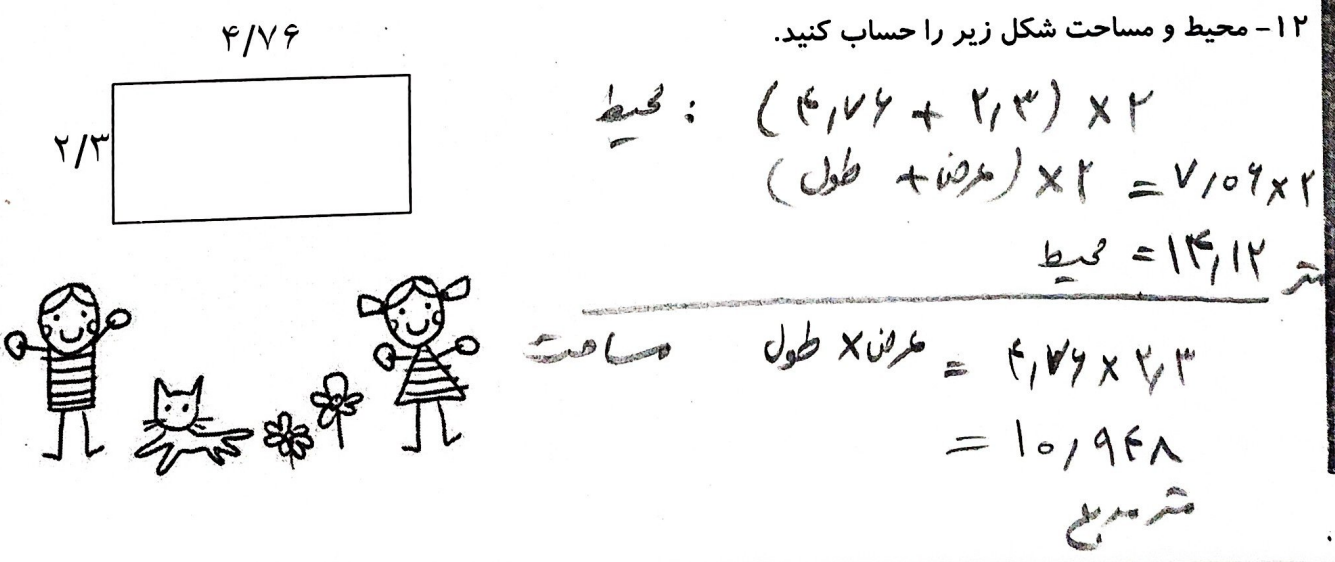 ۱۲- محیط و مساحت شکل زیر را حساب کنید.
۴/۷۶
۲/۳
محیط : (۴,۷۶ + ۲,۳) × ۲
(طول + عرض) × ۲ = ۷,۰۶ × ۲
محیط = ۱۴,۱۲ متر
مساحت طول × عرض = ۴,۷۶ × ۲,۳
= ۱۰,۹۴۸
متر مربع